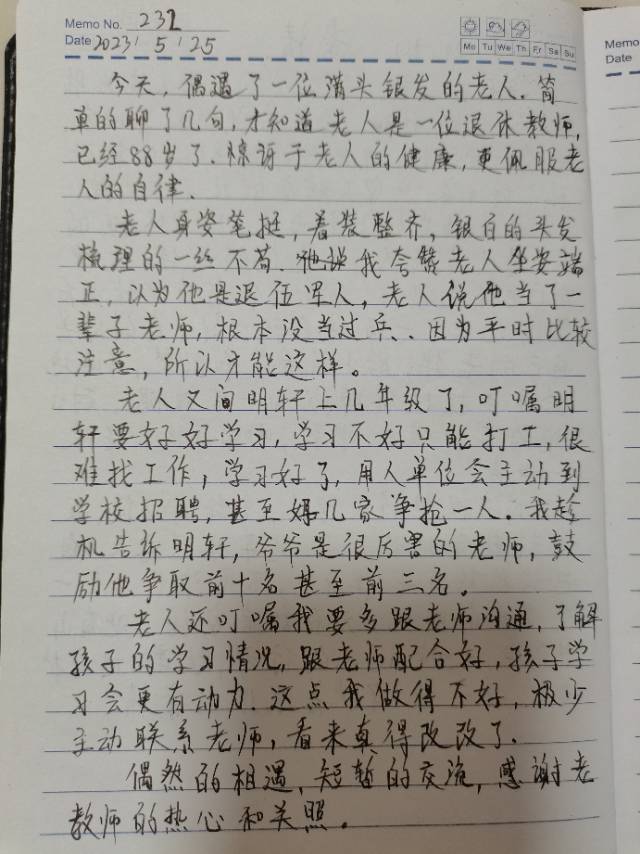 Memo No. 232
Date 2023 / 5 / 25
Mo Tu We Th Fr Sa Su
Memo
Date
今天，偶遇了一位满头银发的老人.简
单的聊了几句,才知道老人是一位退休教师,
已经88岁了.惊讶于老人的健康,更佩服老
人的自律.
老人身姿笔挺,着装整齐,银白的头发
梳理的一丝不苟.他说我夸赞老人坐姿端
正,认为他是退伍军人,老人说他当了一
辈子老师,根本没当过兵.因为平时比较
注意,所以才能这样。
老人又问明轩上几年级了,叮嘱明
轩要好好学习,学习不好只能打工,很
难找工作,学习好了,用人单位会主动到
学校招聘,甚至好几家争抢一人。我趁
机告诉明轩,爷爷是很厉害的老师,鼓
励他争取前十名甚至前三名。
老人还叮嘱我要多跟老师沟通,了解
孩子的学习情况,跟老师配合好,孩子学
习会更有动力.这点我做得不好,极少
主动联系老师,看来真得改改了.
偶然的相遇,短暂的交流,感谢老
教师的热心和关照。